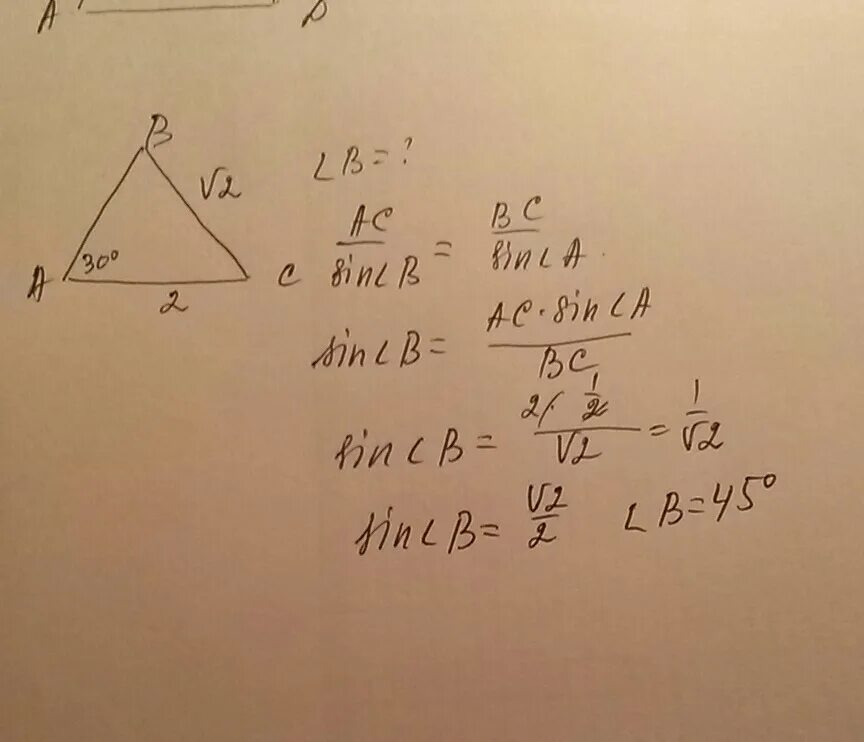 A D
B
√2
A 30° C
2
∠B = ?
AC/sin∠B = BC/sin∠A.
sin∠B = AC · sin∠A/BC
sin∠B = 2 · 1/2/√2 = 1/√2
sin∠B = √2/2 ∠B = 45°